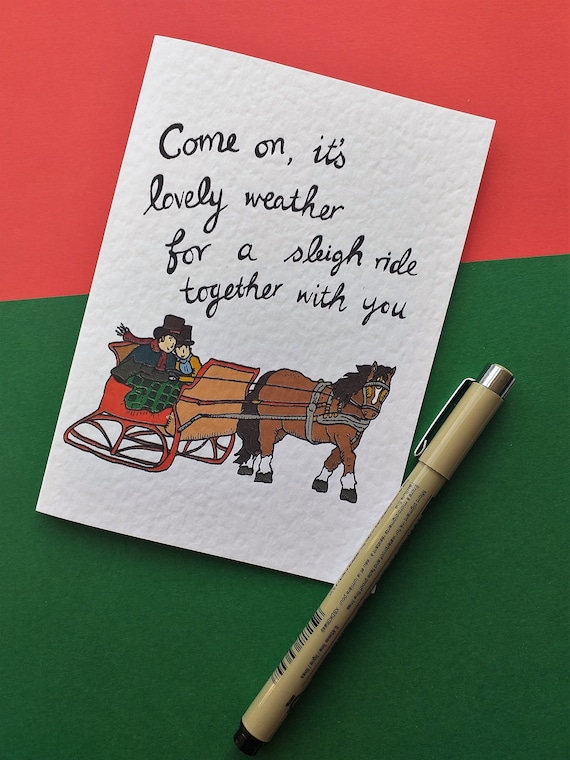 Come on, it's
lovely weather
for a sleigh ride
together with you